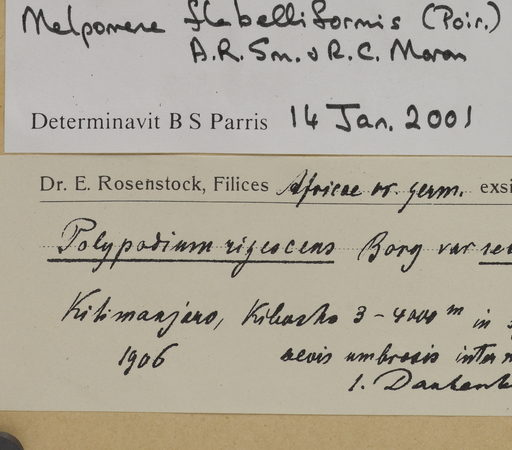 Melpomene flabelliformis (Poir.)
A.R. Sm. & R.C. Moran
Determinavit B S Parris 14 Jan. 2001
Dr. E. Rosenstock, Filices Africae or. germ. exsi
Polypodium rigescens Bory var
Kilimanjaro, 3-4000 m in
1906 umbrosis inter